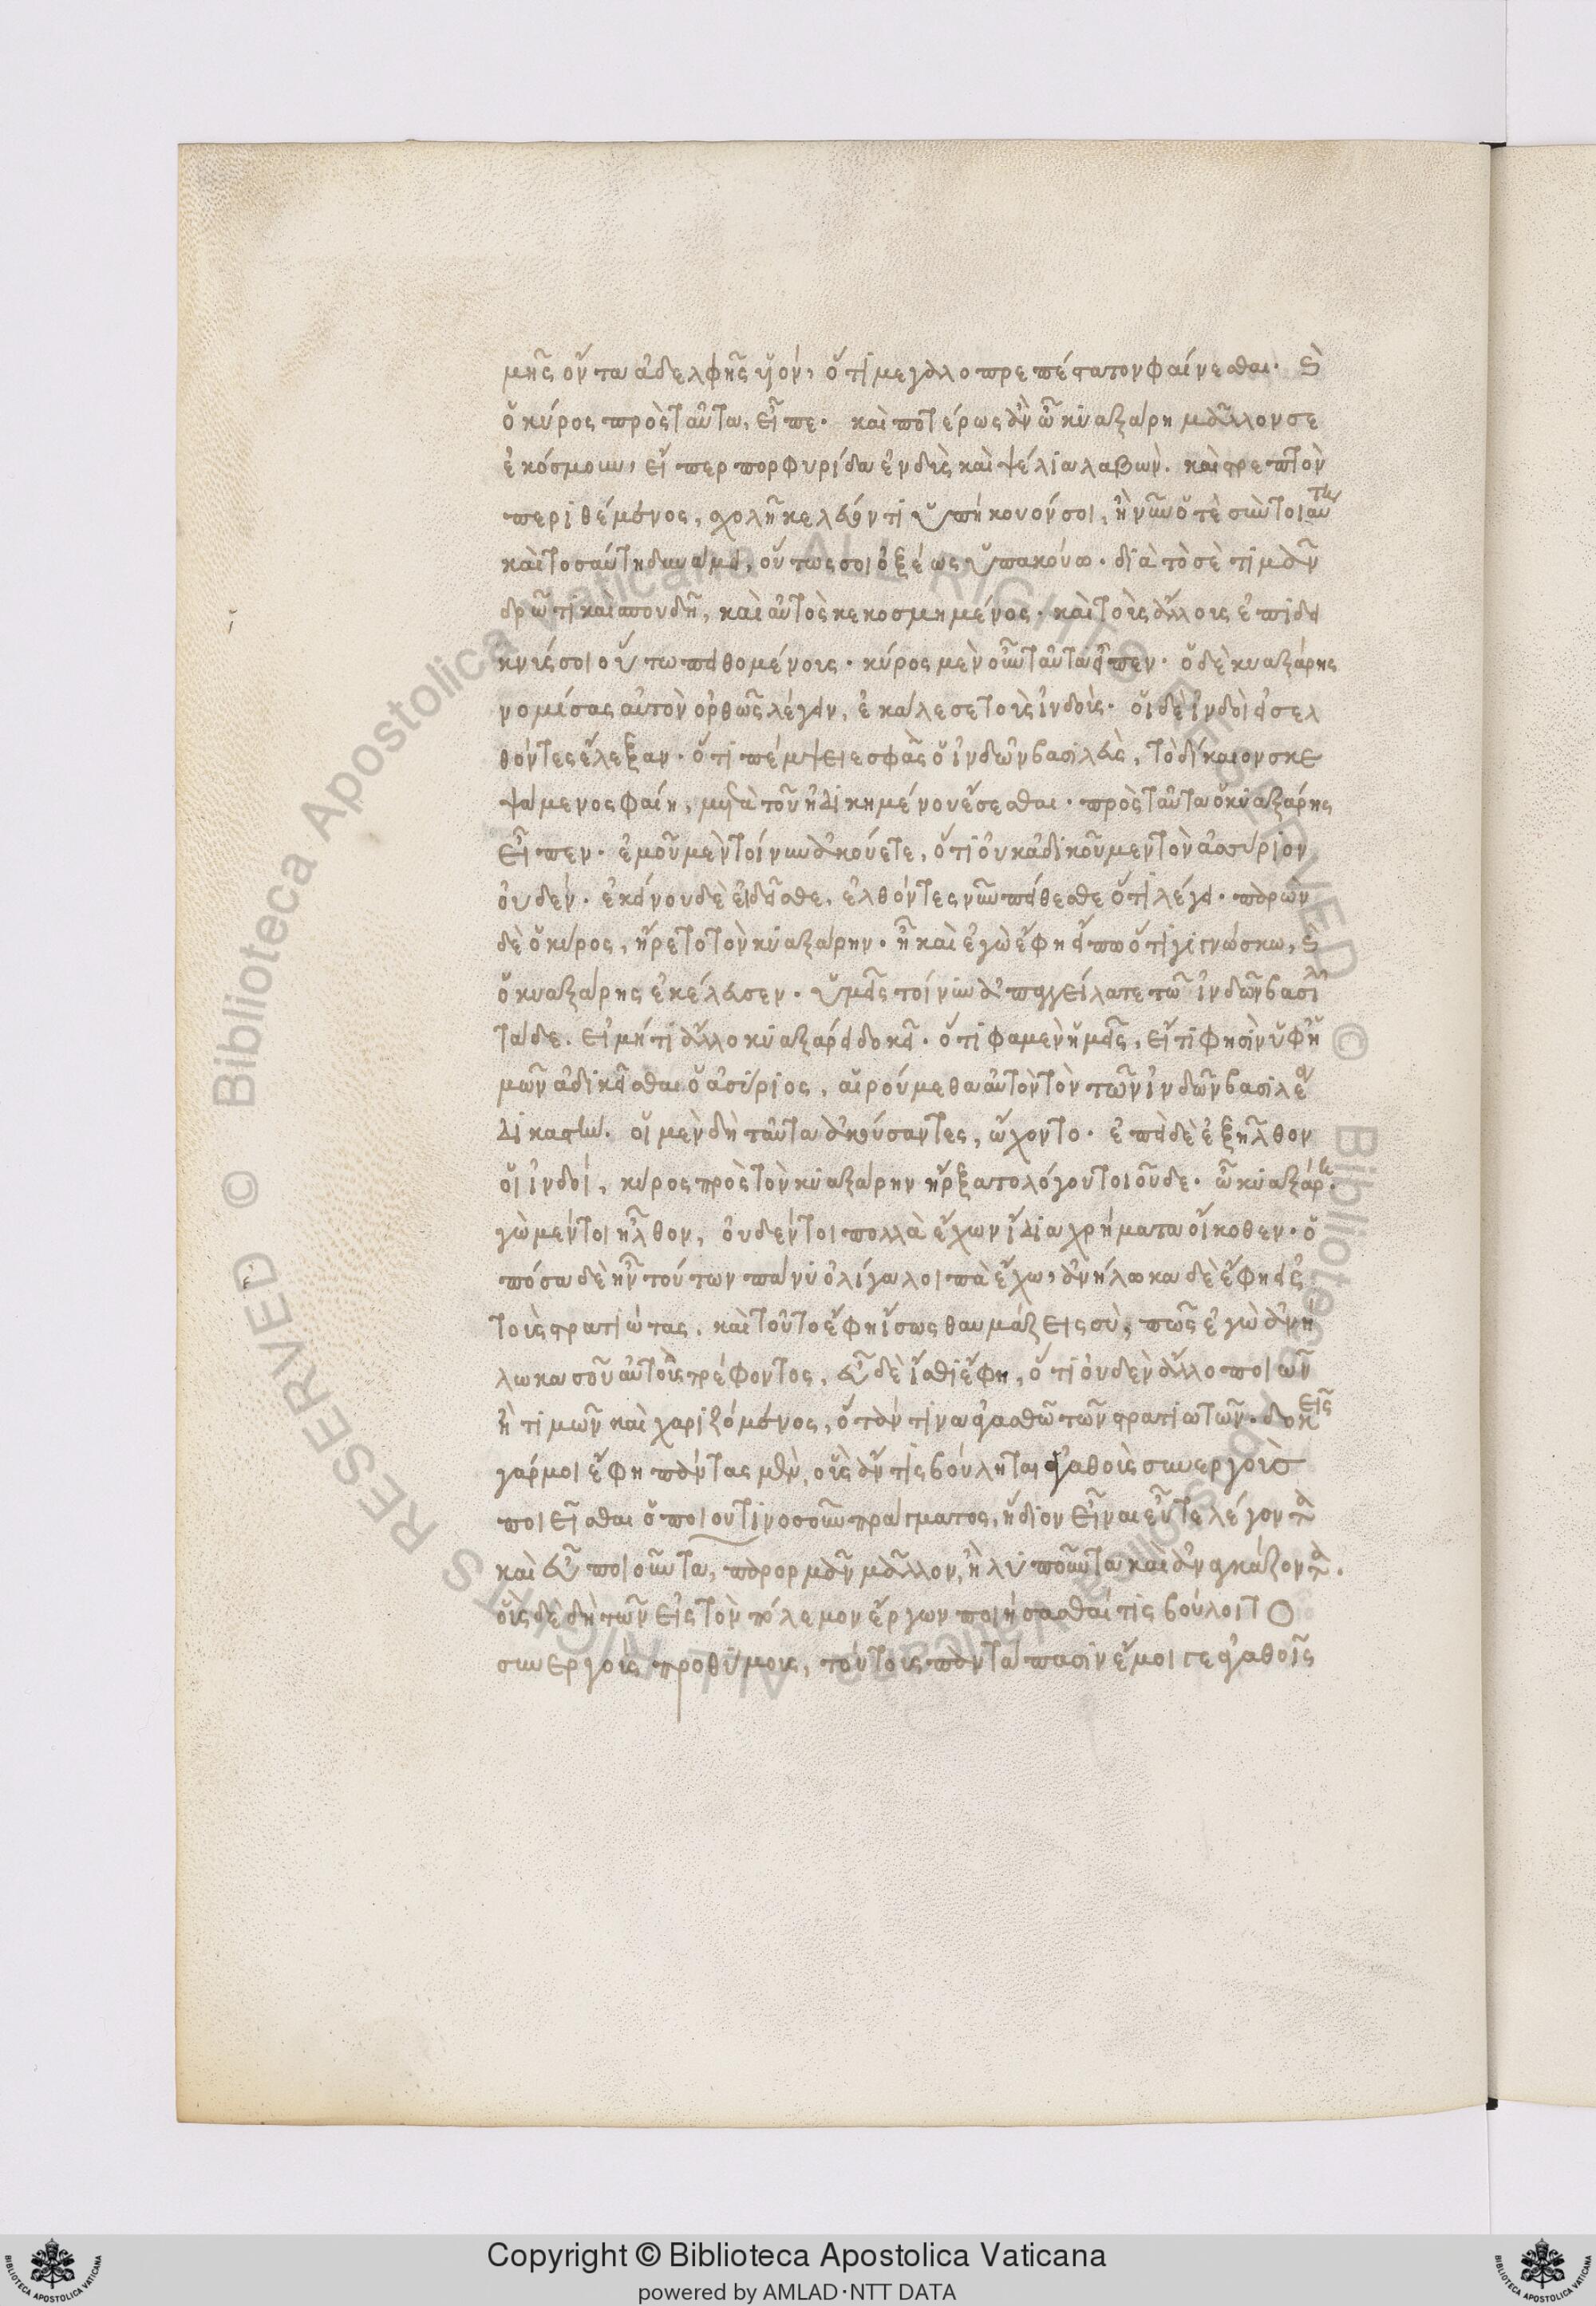 μῆς ὄντα ἀδελφῆς υἱὸν, ὅτι μεγαλοπρεπέστατον φαίνεσθαι. καὶ
ὁ κύρος πρὸς ταῦτα, εἶπε. καὶ ποτέρως ἂν ὦ κυαξάρη μᾶλλον σε
ἐκόσμουν, εἴπερ πορφυρίδα ἐνδὺς καὶ ψέλια λαβὼν. καὶ στρεπτὸν
περιθέμενος, σχολῇ κελεύοντι ὑπήκουον σοι, ἢ νῦν ὅτε σὺν τοιαύτῃ
καὶ τοσαύτῃ δυνάμει, οὕτως σοι ὀξέως ὑπακούω. διὰ τὸ σὲ τιμᾶν
δρῶτι καὶ σπουδῇ, καὶ αὐτὸς κεκοσμημένος. καὶ τοὺς ἄλλους ἐπιδει
κνύς σοι οὕτω πειθομένους. κύρος μὲν οὖν ταῦτα εἶπεν. ὁ δὲ κυαξάρης
νομίσας αὐτὸν ὀρθῶς λέγειν, ἐκάλεσε τοὺς ἰνδοὺς. οἱ δὲ ἰνδοὶ εἰσελ
θόντες ἔλεξαν. ὅτι πέμψειε σφᾶς ὁ ἰνδῶν βασιλεὺς, τὸ δίκαιον σκε
ψάμενος φαίη, μετὰ τοῦ ἠδικημένου ἔσεσθαι. πρὸς ταῦτα ὁ κυαξάρης
εἶπεν. ἐμοῦ μὲν τοίνυν ἀκούετε, ὅτι οὐκ ἀδικοῦμεν τὸν ἀσσύριον
οὐδέν. ἐκείνου δὲ εἰ δεῖσθε, ἐλθόντες νῦν πύθεσθε ὅτι λέγει. παρὼν
δὲ ὁ κύρος, ἤρετο τὸν κυαξάρην. ἦ καὶ ἐγὼ ἔφη εἴπω ὅτι γιγνώσκω, καὶ
ὁ κυαξάρης ἐκέλευσεν. ὑμεῖς τοίνυν ἀπαγγείλατε τῷ ἰνδῶν βασιλεῖ
τάδε. εἰ μή τι ἄλλο κυαξάρει δοκεῖ. ὅτι φαμὲν ἡμεῖς, εἴ τι φησὶν ὑφ' ἡ
μῶν ἀδικεῖσθαι ὁ ἀσσύριος, αἱρούμεθα αὐτὸν τὸν τῶν ἰνδῶν βασιλέα
δικαστήν. οἱ μὲν δὴ ταῦτα ἀκούσαντες, ᾤχοντο. ἐπεὶ δὲ ἐξῆλθον
οἱ ἰνδοί, κύρος πρὸς τὸν κυαξάρην ἤρξατο λόγου τοιοῦδε. ὦ κυαξάρη, ἐ
γὼ μέντοι ἦλθον, οὐδέν τοι πολλὰ ἔχων ἴδια χρήματα οἴκοθεν. ὁ
πόσα δὲ ἦν τούτων πάνυ ὀλίγα λοιπὰ ἔχω, ἀνήλωκα δὲ ἔφη εἰς
τοὺς στρατιώτας. καὶ τοῦτο ἔφη ἴσως θαυμάζεις σὺ, πῶς ἐγὼ ἀνή
λωκα σοῦ αὐτοὺς τρέφοντος, εὖ δὲ ἴσθι ἔφη, ὅτι οὐδὲν ἄλλο ποιῶν
ἢ τιμῶν καὶ χαριζόμενος, ὅταν τινα ἀγασθῶ τῶν στρατιωτῶν. δοκεῖς
γάρ μοι ἔφη πάντας μὲν, οὓς ἄν τις βούληται ἀγαθοὺς συνεργοὺς
ποιεῖσθαι ὁποιουτινοσοῦν πράγματος, ἥδιον εἶναι εὖ τε λέγοντα
καὶ εὖ ποιοῦντα, παρορμᾶν μᾶλλον, ἢ λυποῦντα καὶ ἀναγκάζοντα.
οὓς δὲ δὴ τῶν εἰς τὸν πόλεμον ἔργων ποιήσασθαί τις βούλοιτο
συνεργοὺς προθύμους, τούτους παντάπασιν ἔμοιγε ἀγαθοῖς